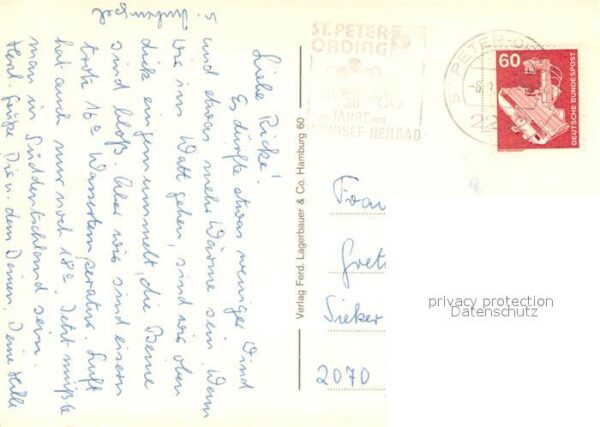 Liebe Ricke!
Es dürfte etwas weniger Wind
und etwas mehr Wärme sein. Wenn
wir im Watt gehen, sind wir oben
dick eingemummelt, die Beine
sind bloß. Aber wir sind eisern
trotz 16° Wassertemperatur. Luft
hat auch nur noch 18°. Jetzt müßte
man in Süddeutschland sein.
Herzl. Grüße Dir u. dem Deinen, Deine Hille
Verlag Ferd. Lagerbauer & Co. Hamburg 60
ST. PETER-
ORDING
30
JAHRE
NORDSEE-HEILBAD
ST. PETER-O
60
DEUTSCHE BUNDESPOST
Frau
Gret
Sieker
2070
privacy protection
Datenschutz